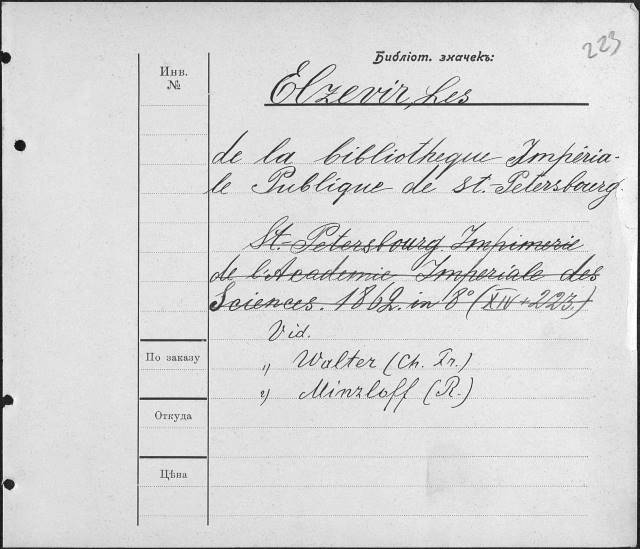 223
Библіот. значекъ:
Инв. №
Elzevir, Les
de la bibliotheque Impéria-
le Publique de St. Petersbourg.
St.-Petersbourg. Impimerie
de l'Academie Imperiale des
Sciences. 1862. in 8° (XIV+223.)
Vid.
По заказу
1) Walter (Ch. Fr.)
2) Minzloff (R.)
Откуда
Цѣна